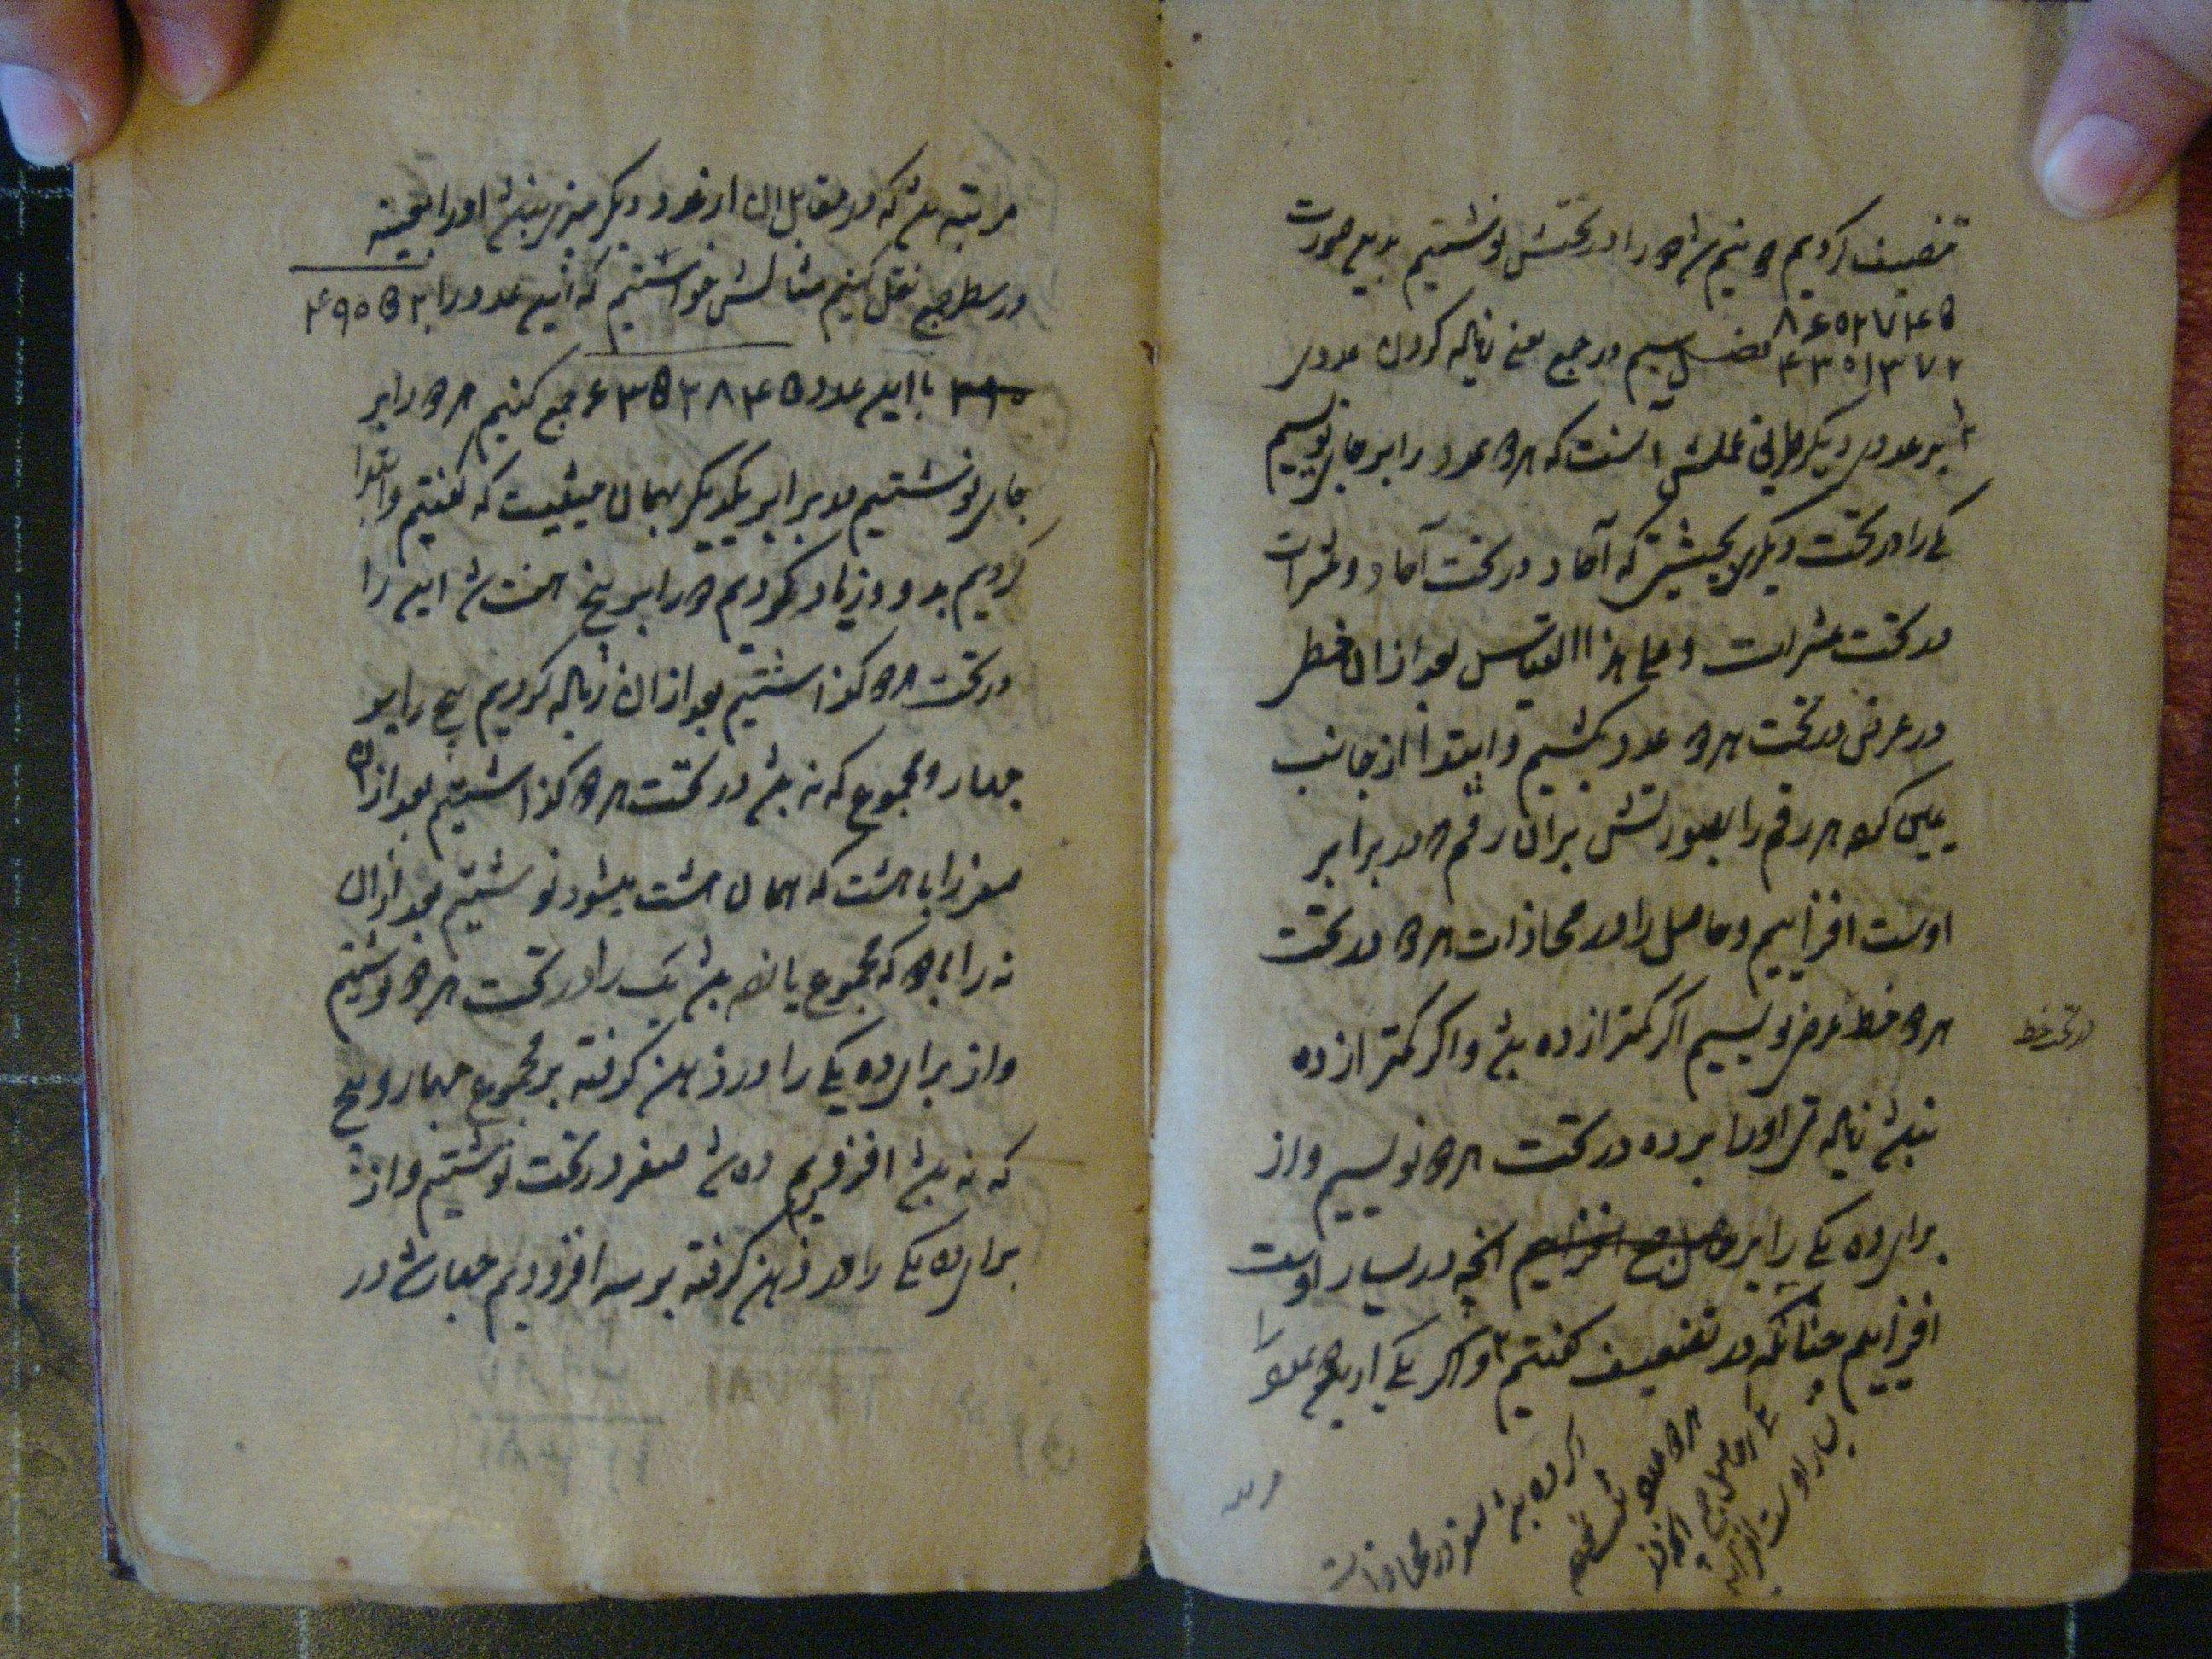 تنصیف کردیم دو نیم شد دو را در تحتش نوشتیم بدین صورت
۸۶۰۲۷۴۵
۴۳۰۱۳۷۲ فصل سیم در جمع یعنی زیاده کردن عددی
بر عددی دیگر طریق عملش آنست که هر دو عدد را بر جای نویسیم
یکی را در تحت دیگری بحیثیتی که آحاد در تحت آحاد و عشرات
در تحت عشرات و علی هذا القیاس بعد از ان خطی
در عرض در تحت هر دو عدد بکشیم و ابتدا از جانب
یمین کرده هر رقم را بصورتش بران رقم که در برابر
اوست افزاییم و حاصل را در محاذات هر دو در تحت
هر دو خط عرضی نویسیم اگر کمتر از ده باشد و اگر کمتر از ده
در تحت خط
نباشد زیادتی او را بر ده در تحت هر دو نویسیم و از
برای ده یکی را بر حاصل جمع افزاییم انچه در یسار اوست
افزاییم چنانکه در تضعیف گفتیم و اگر یکی از این دو عدد را
اگر ده باشد صفر در محاذات
هر دو عدد
یکی از حاصل جمع انچه در
یسار اوست افزاییم
مرتبه
مرتبه باشد که در مقابل ان از عدد دیگر چیزی نباشد او را بعینه
در سطر جمع نقل کنیم مثالش خواستیم که این عدد را ۴۹۰۵۲
با این عدد ۶۳۵۲۸۴۵ جمع کنیم هر دو را بر
جای نوشتیم در برابر یکدیگر بهمان حیثیت که گفتیم و ابتدا
کردیم بدو و زیاد کردیم دو را بر پنج هفت شد این را
در تحت هر دو گذاشتیم بعد از ان زیاده کردیم پنج را بر
چهار و مجموع که نه باشد در تحت هر دو گذاشتیم بعد از ان
صفر را با هشت که همان هشت میشود نوشتیم بعد از ان
نه را با دو که مجموع یازده باشد یک را در تحت هر دو نوشتیم
و از برای ده یکی را در ذهن گرفته بر مجموع چهار و پنج
که نه باشد افزودیم ده شد صفر در تحت نوشتیم و از
برای ده یکی را در ذهن گرفته بر سه افزودیم چهار شد در